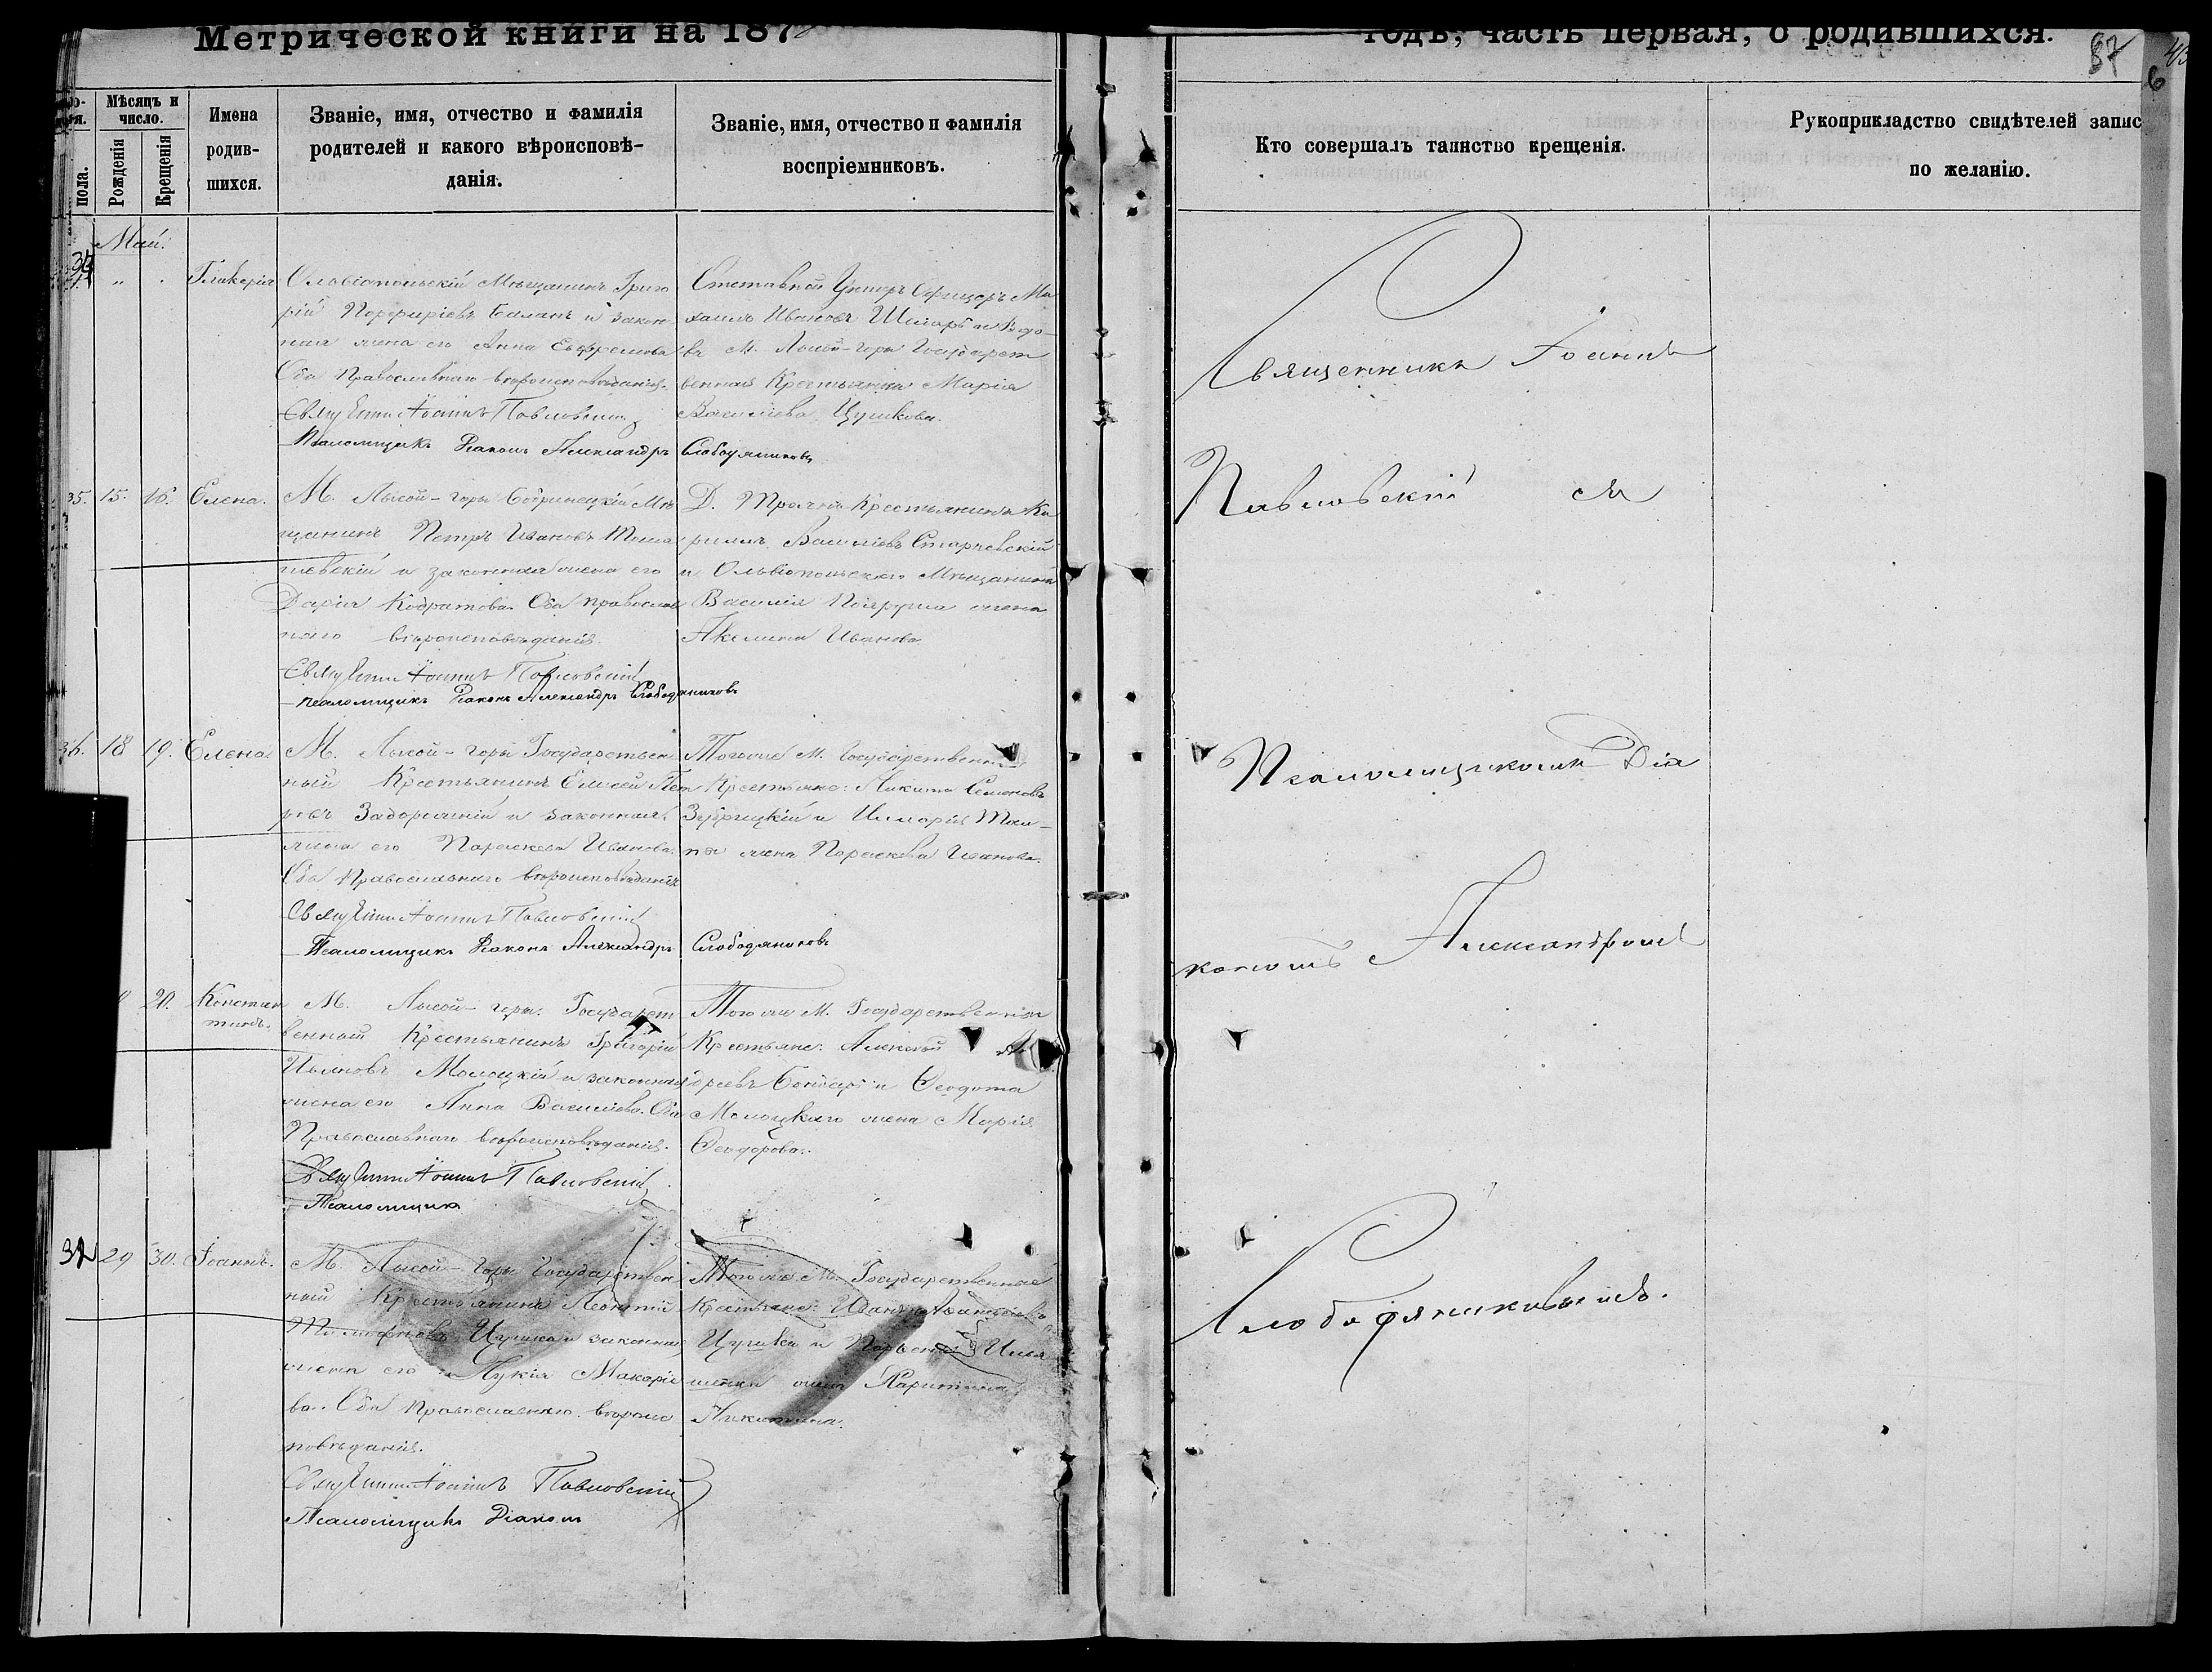 Метрической книги на 187
годъ, часть первая, о родившихся.
87
6
пола.
Мѣсяцъ и
число.
Рожденія
Крещенія
Имена
родив-
шихся.
Званіе, имя, отчество и фамилія
родителей и какого вѣроисповѣ-
данія.
Званіе, имя, отчество и фамилія
воспріемниковъ.
Кто совершалъ таинство крещенія.
Рукоприкладство свидѣтелей запис
по желанію.
Май.
34
Гликерія
Ольвіопольскій Мѣщанинъ Григо
рій Порфиріевъ Баланъ и закон
ная жена его Анна Ефремова
Оба Православнаго вѣроисповѣданія.
Священникъ Іоаннъ Павловскій
Псаломщикъ Діаконъ Александръ Слободяниковъ
Отставной Унтеръ Офицеръ Ми
хаилъ Ивановъ и Вдо-
ва М. Лысой-горы Государст
венная Крестьянка Марія
Васильева Цушкова.
35. 15. 16. Елена.
М. Лысой-горы Бобринецкій Мѣ
щанинъ Петръ Ивановъ Тома
шевскій и законная жена его
Дарія Кодратова. Оба православ
наго вѣроисповѣданія.
Священникъ Іоаннъ Павловскій
Псаломщикъ Діаконъ Александръ Слободяниковъ
Д. Крестьянинъ Ки
риллъ Васильевъ Старчевскій
и Ольвіопольскаго Мѣщанина
Василія жена
Акелина Иванова
36. 18 19. Елена
М. Лысой-горы Государствен
ный Крестьянинъ Елисей Пет
ровъ Задорожній и законная
жена его Параскева Иванова.
Оба Православнаго вѣроисповѣданія
Священникъ Іоаннъ Павловскій
Псаломщикъ Діаконъ Александръ Слободяниковъ
Тогоже М. Государственные
Крестьяне: Никита Семеновъ
и Иларія
жена Параскева Иванова.
20. Констан
тинъ.
М. Лысой-горы Государст
венный Крестьянинъ Григорій
Ивановъ Молоцкій и законная
жена его Анна Васильева. Оба
Православнаго вѣроисповѣданія.
Священникъ Іоаннъ Павловскій
Псаломщикъ
Тогоже М. Государственные
Крестьяне: Алексѣй Ан
дреевъ Бондарь и Ѳеодота
Молоцкаго жена Марія
Ѳеодорова.
29 30. Іоаннъ.
М. Лысой-горы Государствен
ный Крестьянинъ Леонтій
Цушка и законная
жена его Лукія Макаріе
ва. Оба Православнаго вѣроис
повѣданія.
Священникъ Іоаннъ Павловскій
Псаломщикъ Діаконъ
Тогоже М. Государственные
Крестьяне: Иванъ Аѳанасіевъ
Цушка и Илья
шенка жена Харитина
Никитина.
Священникъ Іоаннъ
Павловскій съ
Псаломщикомъ Діа
кономъ Александромъ
Слободяниковымъ.